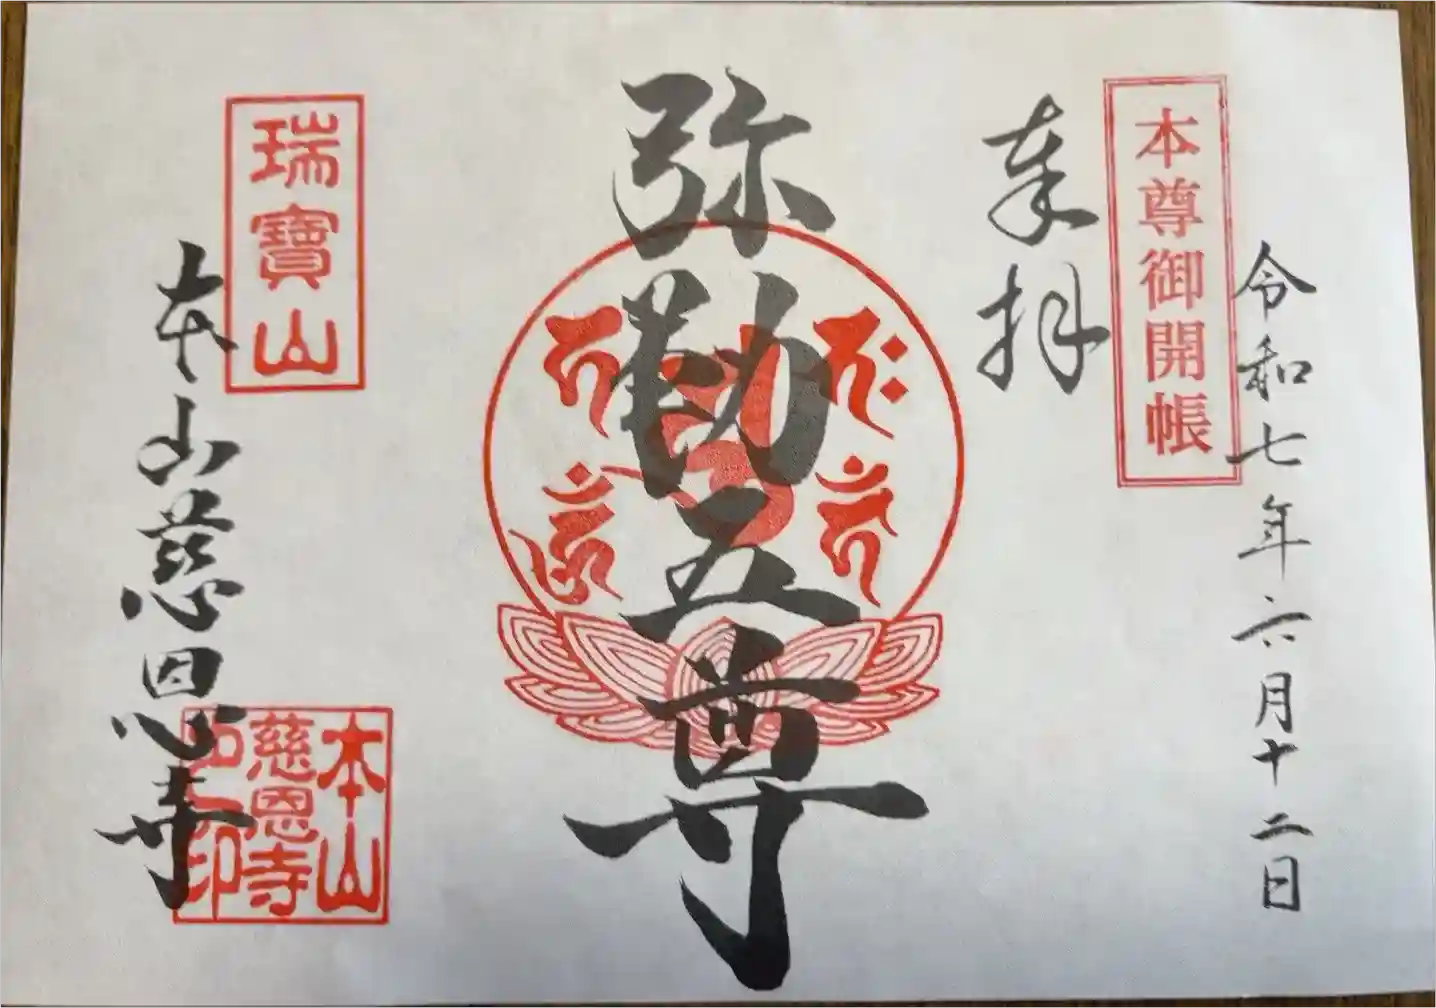 令和七年六月十二日
本尊御開帳
奉拝
弥勒五尊
瑞寳山
本山慈恩寺
本山
慈恩寺
印